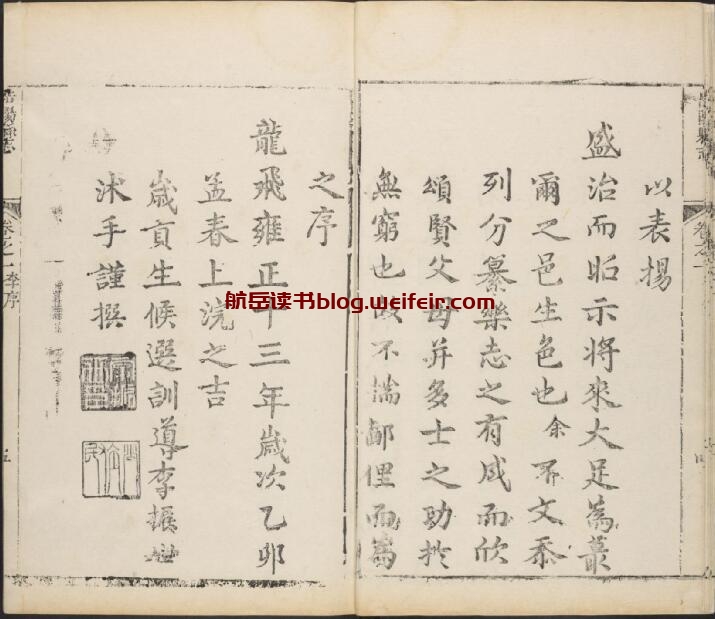 以表揚
盛治而昭示將來大足為叢
爾之邑生色也余不文忝
列分纂樂志之有成而欣
頌賢父母并多士之助於
無窮也故不揣鄙俚而為
之序
龍飛雍正十三年歲次乙卯
孟春上浣之吉
歲貢生候選訓導李振世
沐手謹撰
卷之一 李序
五
航岳读书blog.weifeir.com